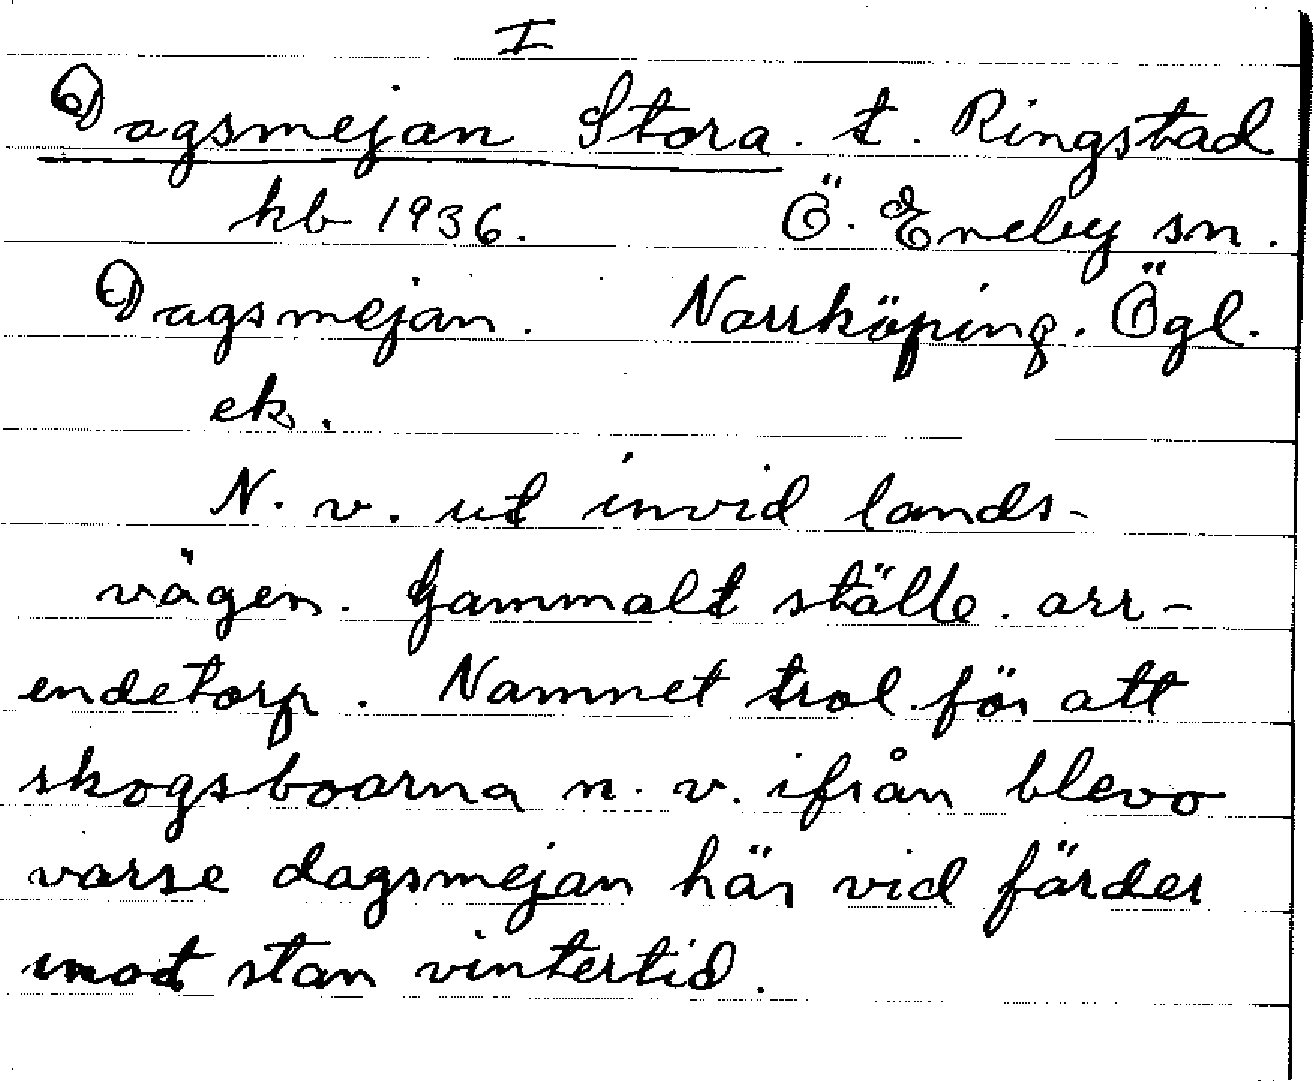 I
Dagsmejan Stora. t. Ringstad
kb 1936. Ö. Eneby sn.
Dagsmejan. Norrköping. Ögl.
ek.
N. v. ut invid lands-
vägen. Gammalt ställe. arr-
endetorp. Namnet trol. för att
skogsboarna n. v. ifrån blevo
varse dagsmejan här vid färder
imot stan vintertid.